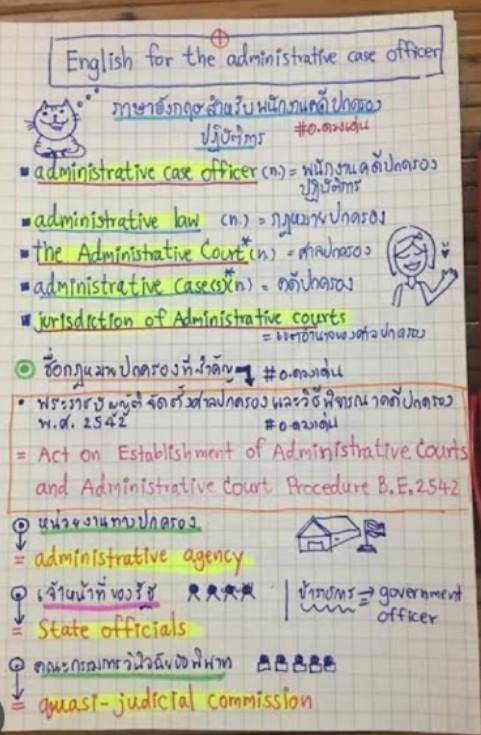 English for the administrative case officer
ภาษาอังกฤษสำหรับพนักงานคดีปกครอง
ปฏิบัติการ #อ.ดวงเด่น
administrative case officer (n.) = พนักงานคดีปกครอง
ปฏิบัติการ
administrative law (n.) = กฎหมายปกครอง
the Administrative Court* (n) = ศาลปกครอง
administrative case(s)* (n) = คดีปกครอง
jurisdiction of Administrative courts
= เขตอำนาจของศาลปกครอง
ชื่อกฎหมายปกครองที่สำคัญ #อ.ดวงเด่น
• พระราชบัญญัติจัดตั้งศาลปกครองและวิธีพิจารณาคดีปกครอง
พ.ศ. 2542 #อ.ดวงเด่น
= Act on Establishment of Administrative Courts
and Administrative Court Procedure B.E.2542
หน่วยงานทางปกครอง
= administrative agency
เจ้าหน้าที่ของรัฐ ข้าราชการ → government
officer
= State officials
คณะกรรมการวินิจฉัยข้อพิพาท
= quasi-judicial commission